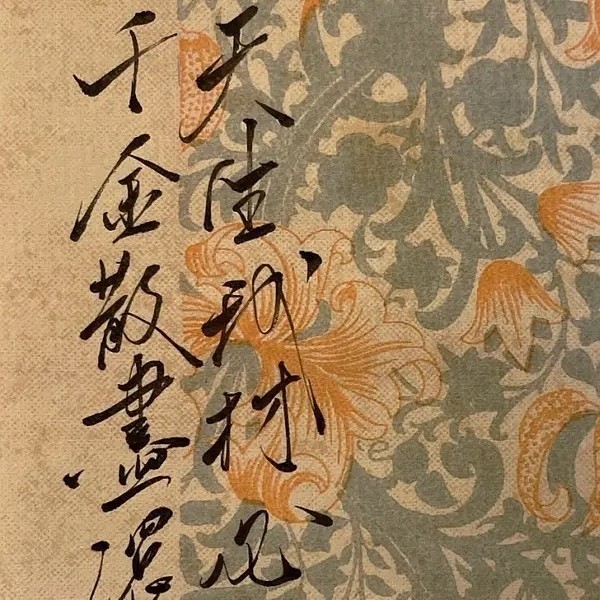 天生我材必
千金散盡還